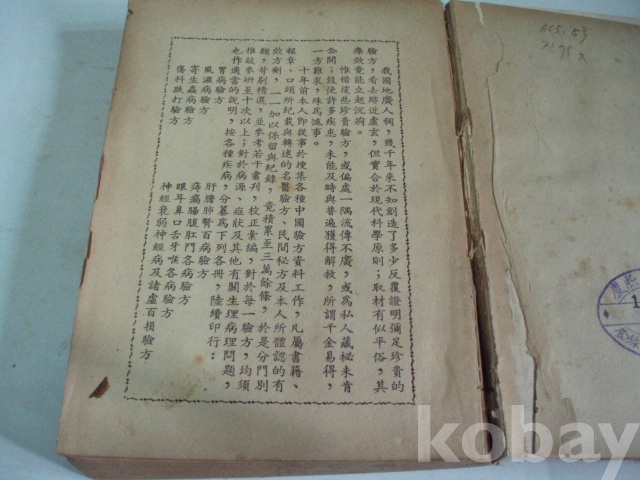 我國地廣人稠，幾千年來不知創造了多少反覆證明彌足珍貴的
驗方，看去跡近虛玄，但實合於現代科學原則；取材有似平俗，其
療效竟能立起沉疴。
惟惜這些珍貴驗方，或偏處一隅流傳不廣，或為私人藏祕未肯
公開；致使許多疾患，未能及時與普遍獲得解救，所謂千金易得，
一方難求，殊為憾事。
十年前本人即從事於搜集各種中國驗方資料工作，凡屬書籍、
報章、口頭所紀載與轉述的名醫驗方、民間秘方及本人所體認的有
效方劑，一一加以保留與紀錄，竟積累至三萬餘條，於是分門別
類，苛剔精選，並參考若干書刊，校正彙編，對於每一驗方，均須
推敲參研至十次以上；對於病源、症狀及其他有關生理病理問題，
也作適當的說明，按各種疾病，分纂為下列各冊，陸續印行：
胃病驗方
肝膽肺腎百病驗方
風濕病驗方
痔瘡腸腹肛門各病驗方
寄生蟲病驗方
眼耳鼻口舌牙喉各病驗方
傷科跌打驗方
神經衰弱神經病及諸虛百損驗方
kobay